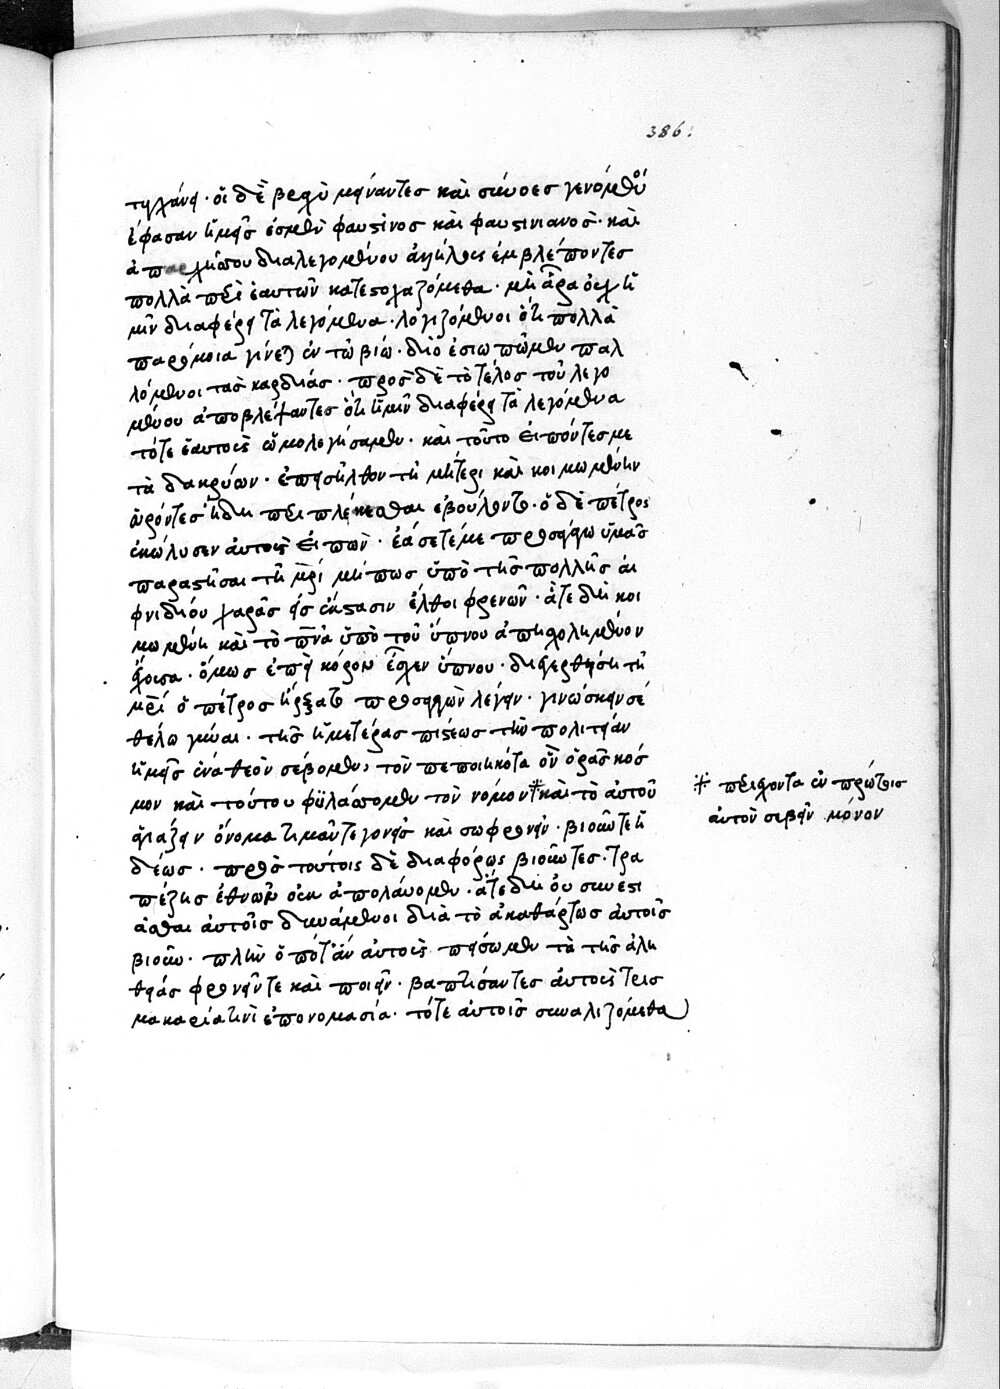 386.
τυγχάνει· οἱ δὲ βραχὺ μείναντες καὶ σύννοες γενόμενοι
ἔφασαν ἡμεῖς ἐσμὲν φαυστῖνος καὶ φαυστινιανός· καὶ
ἀπαρχῆς σου διαλεγομένου ἀλλήλοις ἐμβλέποντες
πολλὰ περὶ ἑαυτῶν κατεστοχαζόμεθα· μὴ ἆρα οὐχ ἡ
μῖν διαφέρει τὰ λεγόμενα· λογιζόμενοι ὅτι πολλὰ
παρόμοια γίνεται ἐν τῶ βίω· διὸ ἐσιωπῶμεν παλ
λόμενοι τὰς καρδίας· πρὸς δὲ τὸ τέλος τοῦ λεγο
μένου ἀποβλέψαντες ὅτι ἡμῖν διαφέρει τὰ λεγόμενα
τότε ἑαυτοῖς ὡμολογήσαμεν· καὶ τοῦτο εἰπόντες με
τὰ δακρύων· ἐπεισῆλθον τῆ μητέρι καὶ κοιμωμένην
εὑρόντες ἤδη περιπλέκεσθαι ἐβούλοντο· ὁ δὲ πέτρος
ἐκώλυσεν αὐτοῖς εἰπὼν· ἐάσετέ με προσάγω ὑμᾶς
παραστῆσαι τῆ μρὶ μήπως ὑπὸ τῆς πολλῆς αἰ
φνιδίου χαρᾶς εἰς ἔκστασιν ἔλθοι φρενῶν· ἅτε δὴ κοι
μωμένη καὶ τὸ πνα ὑπὸ τοῦ ὕπνου ἀπησχολημένον
ἔχουσα· ὅμως ἐπεὶ κόρον ἔσχεν ὕπνου· διεγερθείση τῆ
μρὶ ὁ πέτρος ἤρξατο προσελθὼν λέγειν· γινώσκειν σέ
θέλω γύναι· τῆς ἡμετέρας πίστεως τὴν πολιτείαν
ἡμεῖς ἕνα θεὸν σέβομεν, τὸν πεποιηκότα ὃν ὁρᾶς κόσ
μον καὶ τούτου φϋλάττομεν τὸν νόμον ※ καὶ τὸ αὐτοῦ
ἁγιάζειν ὄνομα τιμᾶν τε γονεῖς καὶ σωφρονεῖν· βιοῦν τε ἡ
δέως· πρὸς τούτοις δὲ διαφόρως βιοῦντες· τρα
πέζης ἐθνῶν οὐκ ἀπολαύομεν· ἅτε δὴ οὐ συνεστι
ᾶσθαι αὐτοῖς δυνάμενοι διὰ τὸ ἀκαθάρτως αὐτοῖς
βιοῦν· πλὴν ὁπόταν αὐτοῖς πείσωμεν τὰ τῆς ἀλη
θείας φρονεῖν τε καὶ ποιεῖν· βαπτίσαντες αὐτοῖς τρὶς
μακαρία τινὶ ἐπονομασία· τότε αὐτοῖς συναλιζόμεθα
※ περιέχοντα ἐν πρώτοις
αὐτὸν σέβειν μόνον